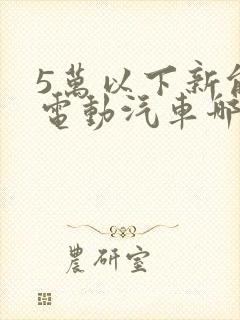 5萬以下新能
電動汽車哪
農研室